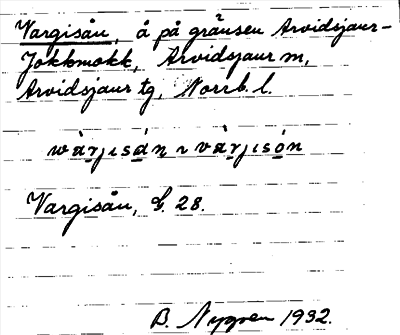 Vargisån, å på gränsen Arvidsjaur-
Jokkmokk, Arvidsjaur m,
Arvidsjaur tg, Norrb. l.
wàrjısán ~ vàrjısón
Vargisån, G. 28.
B. Nygren 1932.